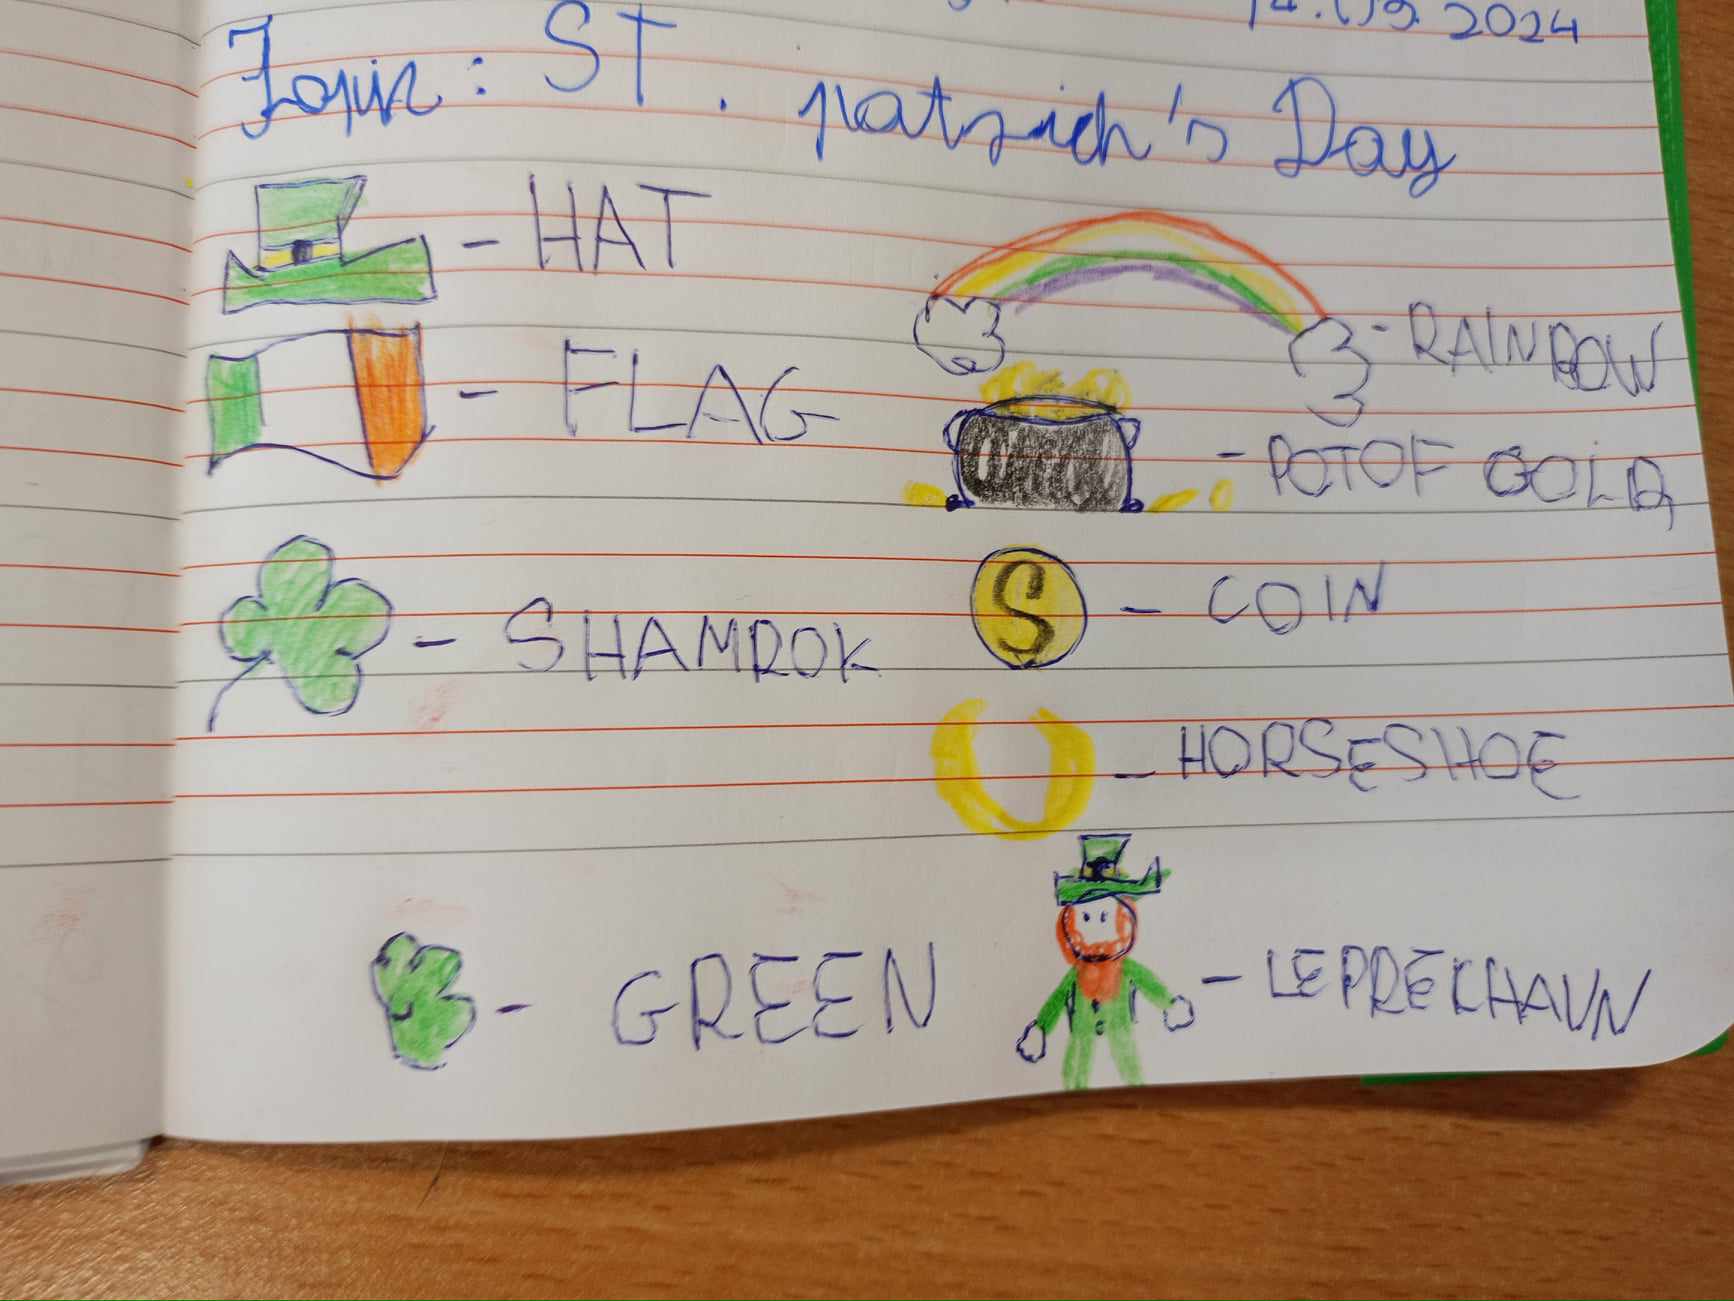 14.03.2024
Topic: ST. patrick's Day
- HAT
- FLAG
- SHAMROK
- GREEN
- RAINBOW
- POT OF GOLD
S
- COIN
- HORSESHOE
- LEPREKHAUN